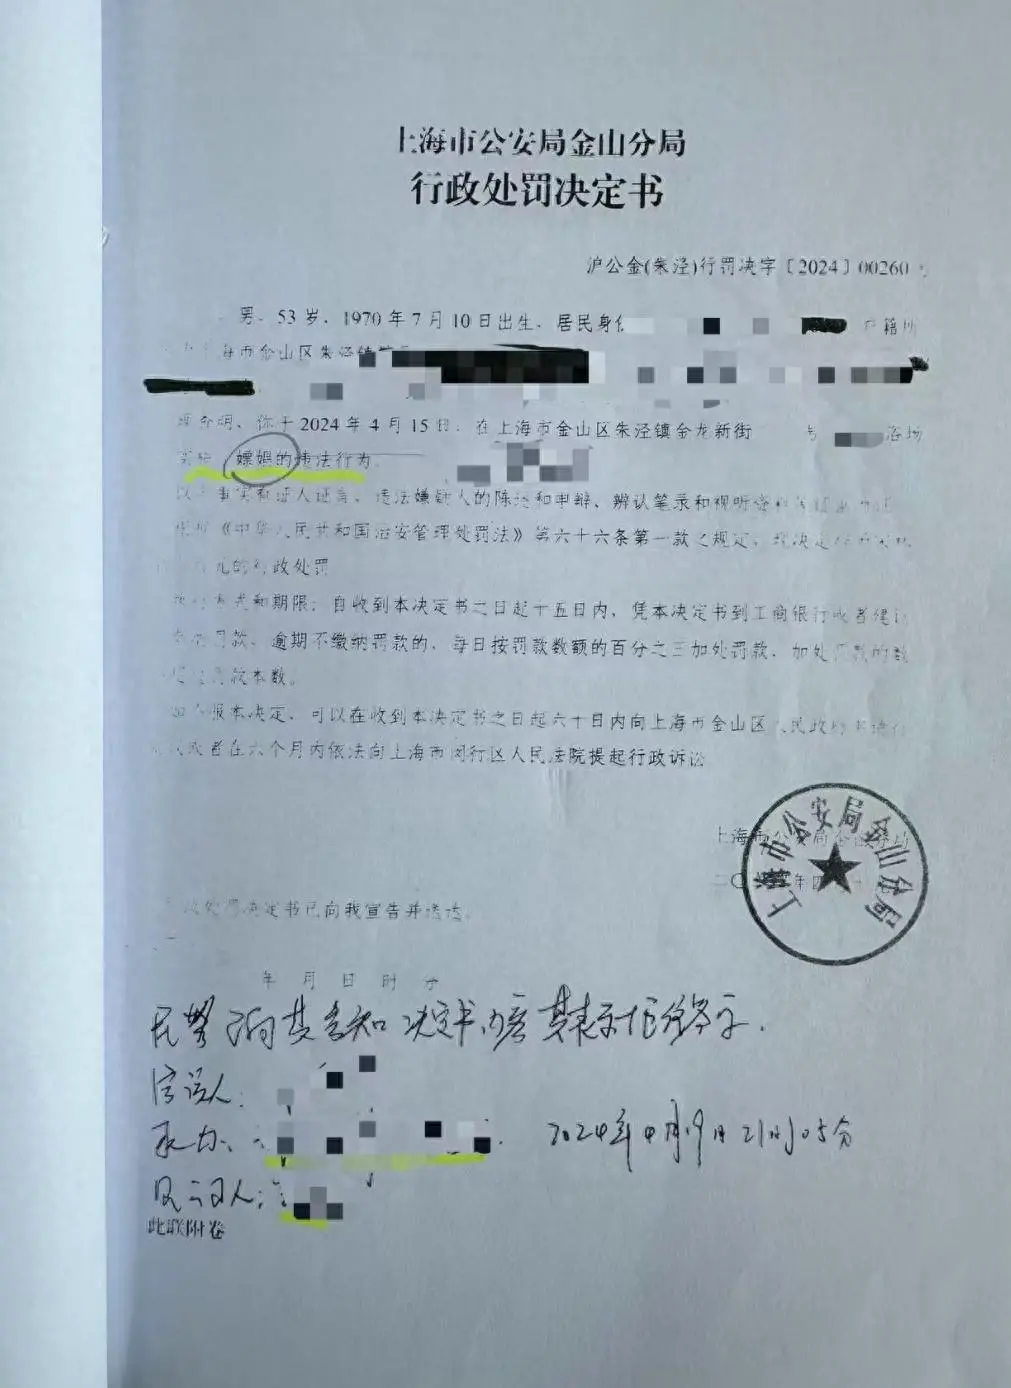 上海市公安局金山分局
行政处罚决定书
沪公金(朱泾)行罚决字〔2024〕00260号
男，53岁，1970年7月10日出生，居民身份 户籍所
上海市金山区朱泾镇
现查明，你于2024年4月15日，在上海市金山区朱泾镇金龙新街 号 浴场
实施 嫖娼的违法行为。
以上事实有证人证言、违法嫌疑人的陈述和申辩、辨认笔录和视听资料等证
根据《中华人民共和国治安管理处罚法》第六十六条第一款之规定，现决定
元的行政处罚
执行方式和期限：自收到本决定书之日起十五日内，凭本决定书到工商银行或者建设
银行 罚款，逾期不缴纳罚款的，每日按罚款数额的百分之三加处罚款，加处罚款的数
罚款本数。
如不服本决定，可以在收到本决定书之日起六十日内向上海市金山区人民政府申请行
或者在六个月内依法向上海市闵行区人民法院提起行政诉讼
上海市公安局金山分局
二〇 年四
上海市公安局金山分局
处罚决定书已向我宣告并送达。
年 月 日 时 分
民警 向其告知 决定书内容 其表示拒绝签字.
宣读人:
见证人:
2024年4月19日21时05分
此联附卷